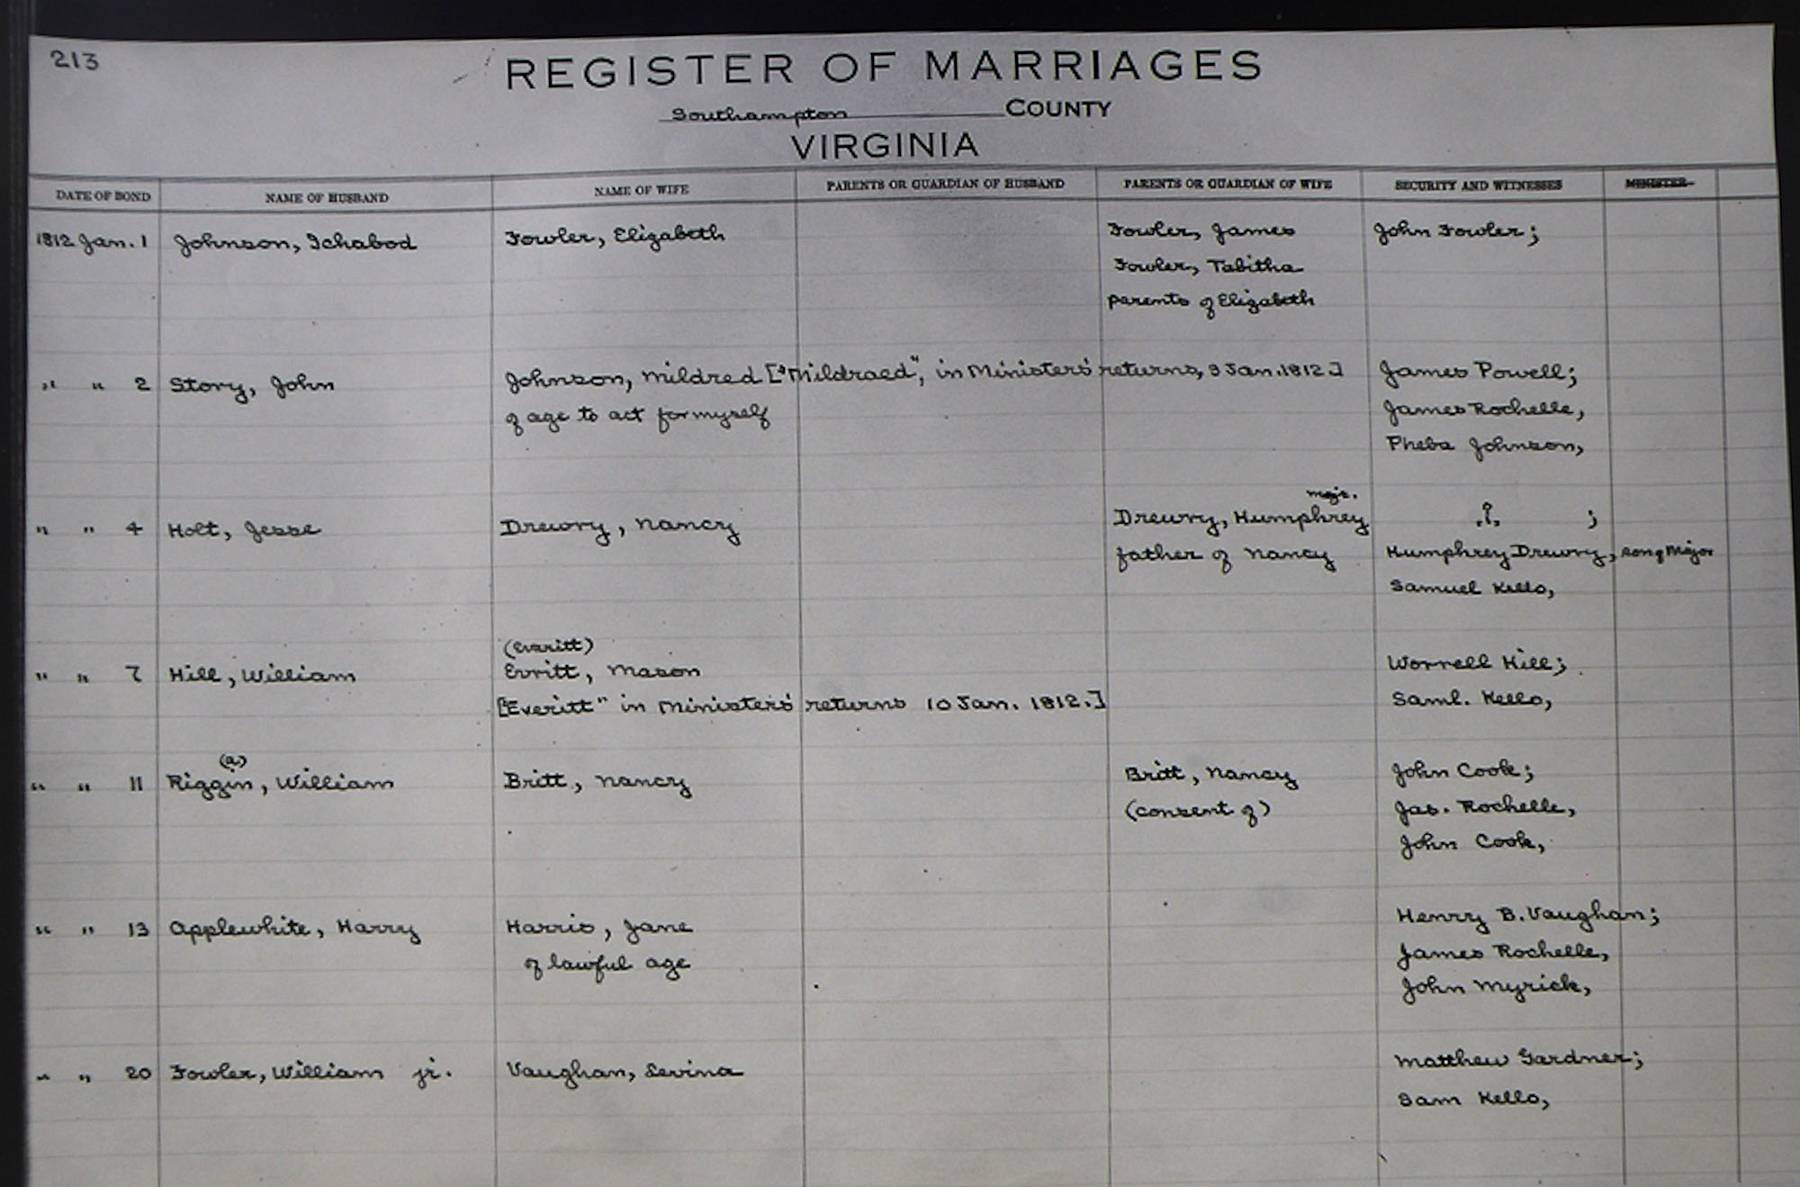 213
REGISTER OF MARRIAGES
Southampton COUNTY
VIRGINIA
DATE OF BOND NAME OF HUSBAND NAME OF WIFE PARENTS OR GUARDIAN OF HUSBAND PARENTS OR GUARDIAN OF WIFE SECURITY AND WITNESSES MINISTER
1812 Jan. 1 Johnson, Ichabod Fowler, Elizabeth Fowler, James John Fowler;
Fowler, Tabitha
parents of Elizabeth
" " 2 Story, John Johnson, Mildred ["Mildraed", in Ministers' returns, 3 Jan. 1812.] James Powell;
of age to act for myself James Rochelle,
Pheba Johnson,
majr.
" " 4 Holt, Jesse Drewry, Nancy Drewry, Humphrey ? ;
father of Nancy Humphrey Drewry, son of Major
Samuel Kello,
(Everitt)
" " 7 Hill, William Evritt, Mason Worrell Hill;
["Everitt" in Ministers' returns 10 Jan. 1812.] Saml. Kello,
(a)
" " 11 Riggin, William Britt, Nancy Britt, Nancy John Cook;
(consent of) Jas. Rochelle,
John Cook,
" " 13 Applewhite, Harry Harris, Jane Henry B. Vaughan;
of lawful age James Rochelle,
John Myrick,
" " 20 Fowler, William jr. Vaughan, Levina Matthew Gardner;
Sam Kello,